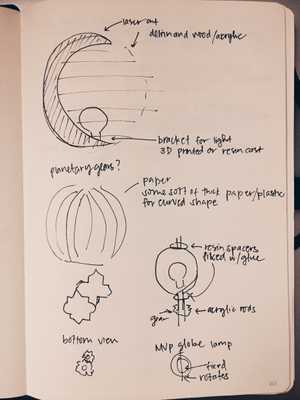 laser cut
delrin and wood/acrylic
bracket for light
3D printed or resin cast
planetary gears?
paper
some sort of thick paper/plastic
for curved shape
resin spacers
fixed w/glue
gear
acrylic rods
bottom view
MVP globe lamp
fixed
rotates